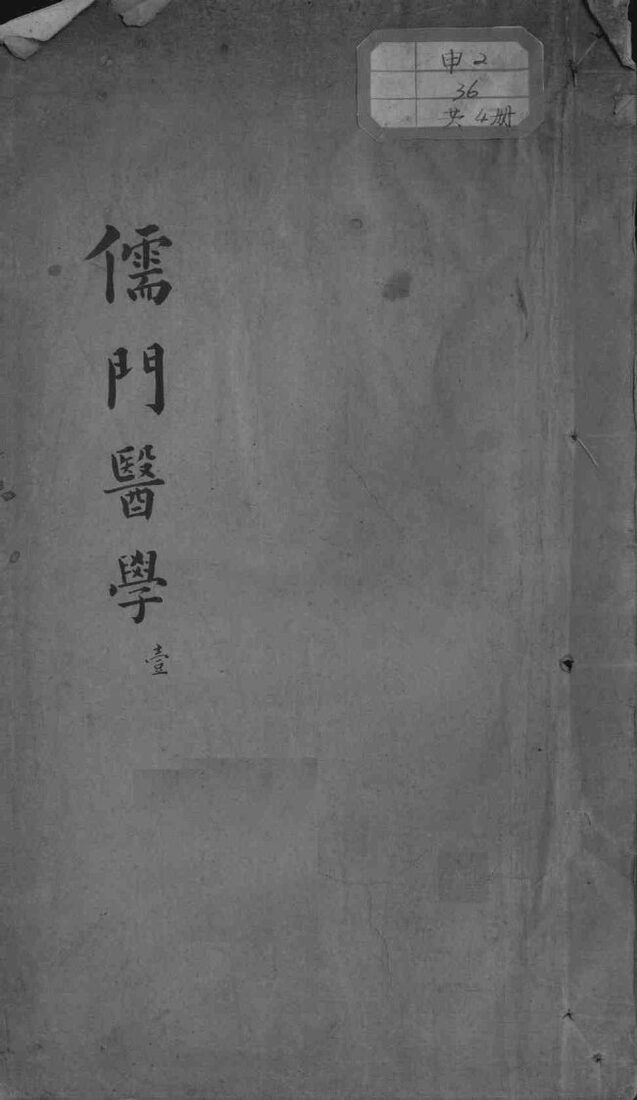 申2
36
共4册
儒門醫學
壹